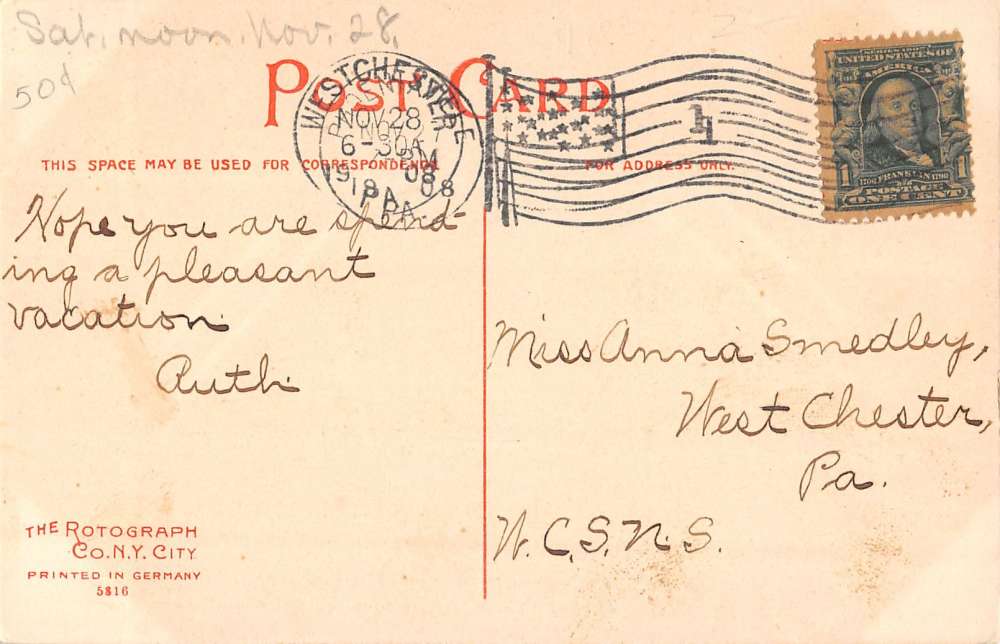 Sat. noon. Nov. 28.
50¢
POST CARD
WESTCHESTER
NOV 28
6-30A
1908
PA.
1
SERIES 1902
UNITED STATES OF
AMERICA
1706 FRANKLIN 1790
POSTAGE
1 ONE CENT 1
THIS SPACE MAY BE USED FOR CORRESPONDENCE
FOR ADDRESS ONLY.
Hope you are spend-
ing a pleasant
vacation.
Ruth.
Miss Anna Smedley,
West Chester,
Pa.
W. C. S. N. S.
THE ROTOGRAPH
CO. N.Y. CITY
PRINTED IN GERMANY
5816